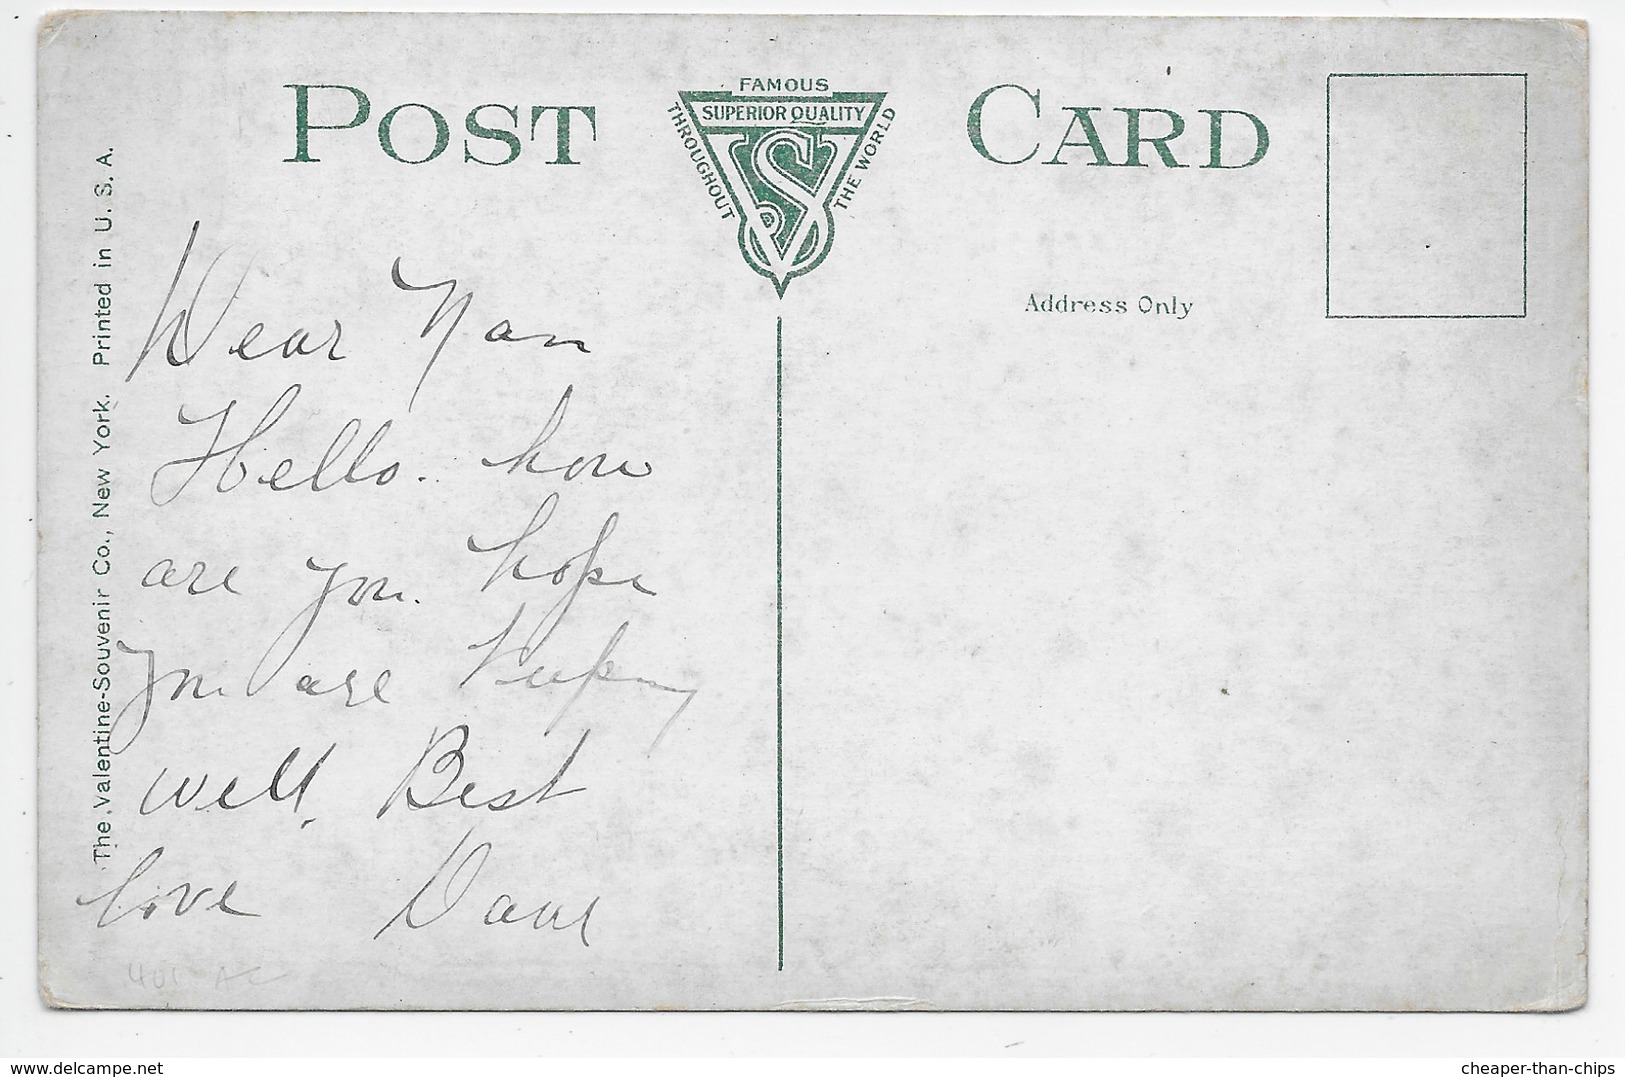 POST CARD
FAMOUS
SUPERIOR QUALITY
THROUGHOUT
THE WORLD
VS Co
Address Only
The Valentine-Souvenir Co., New York. Printed in U. S. A.
Dear Nan
Hello. how
are you. hope
you are keeping
well. Best
love Dave
401 AC
cheaper-than-chips